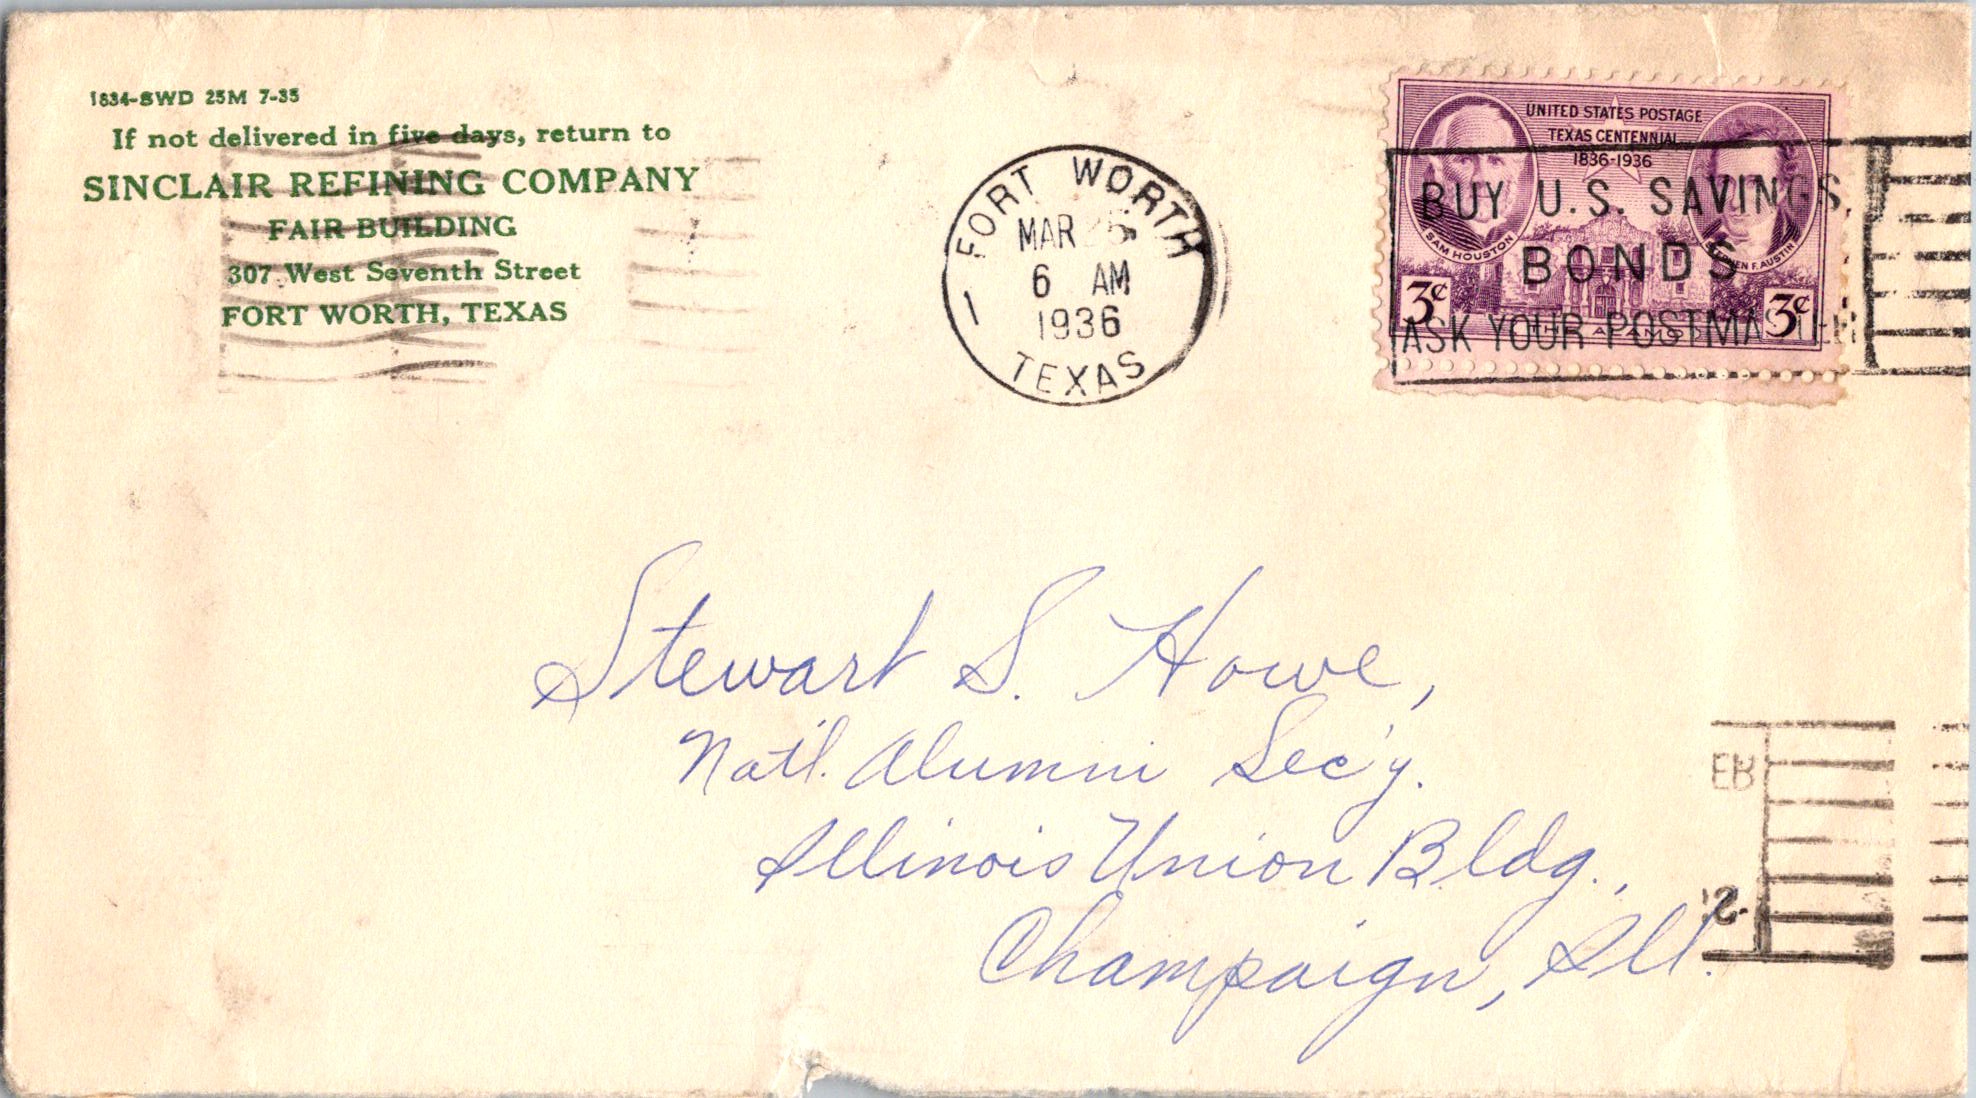 1634-SWD 25M 7-35
If not delivered in five days, return to
SINCLAIR REFINING COMPANY
FAIR BUILDING
307 West Seventh Street
FORT WORTH, TEXAS
FORT WORTH
MAR
6 AM
1936
1
TEXAS
UNITED STATES POSTAGE
TEXAS CENTENNIAL
1836-1936
SAM HOUSTON
STEPHEN F. AUSTIN
3¢ 3¢
THE ALAMO
BUY U.S. SAVINGS
BONDS
ASK YOUR POSTMASTER
Stewart S. Howe,
Nat'l. Alumni Sec'y.
Illinois Union Bldg.,
Champaign, Ill.